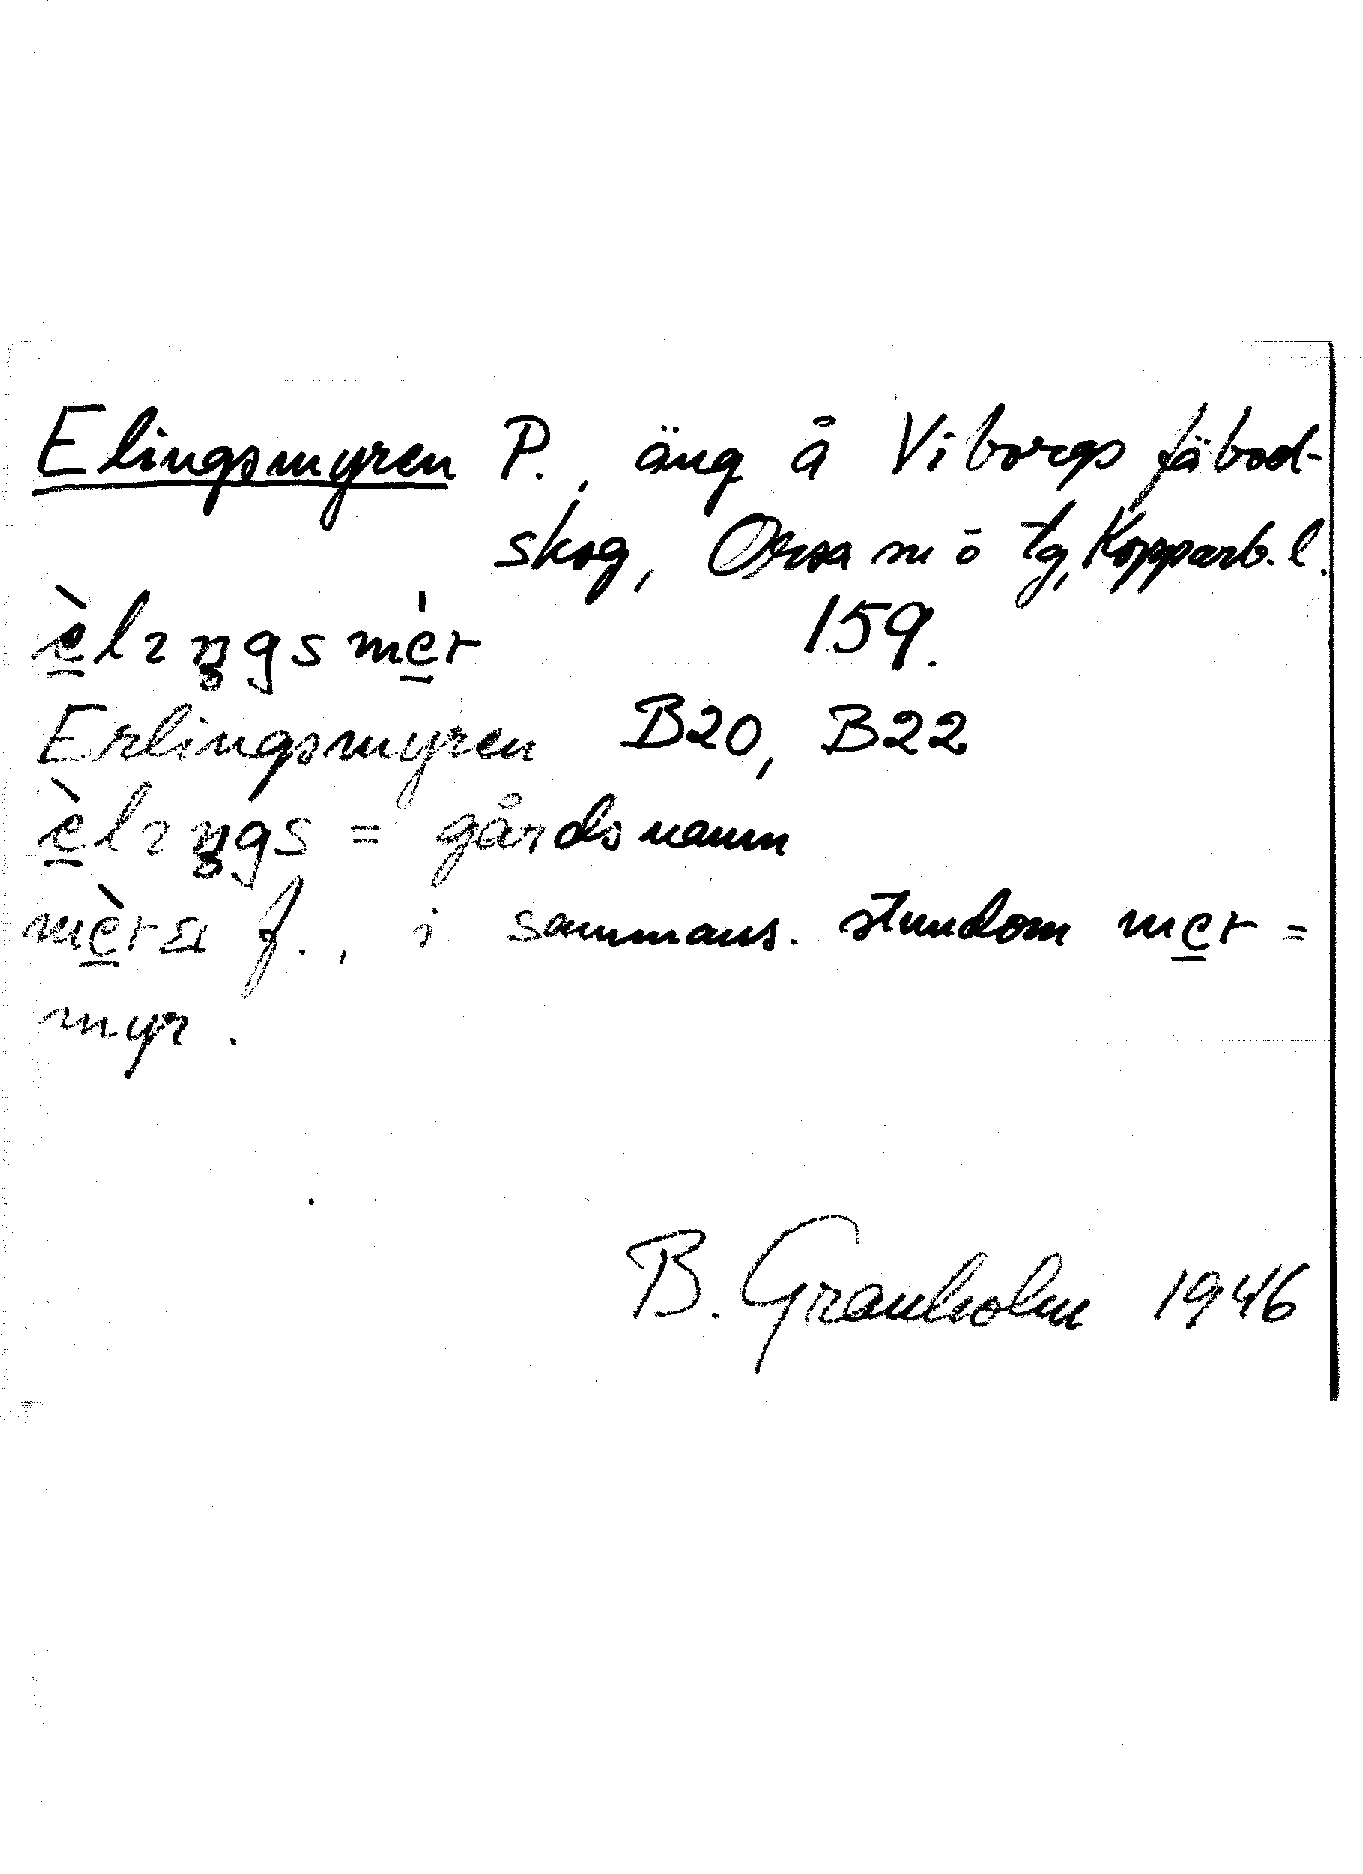 Elingsmyren P., äng å Viborgs fäbod-
skog, Orsa sn o tg, Kopparb. l.
159.
Erlingsmyren B20, B22
= gårdsnamn
f., i sammans. stundom mer =
myr.
B. Granholm 1946